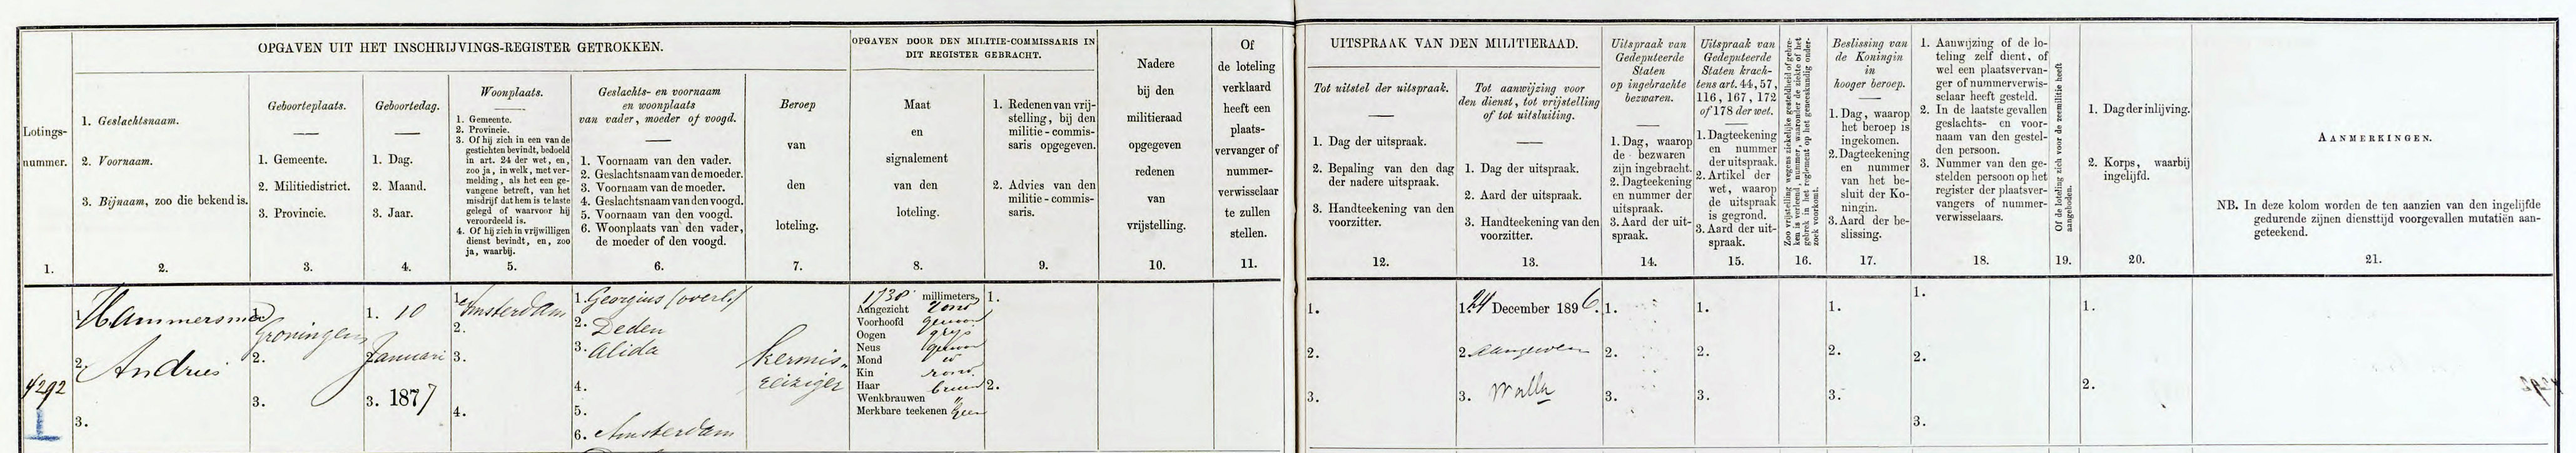 OPGAVEN UIT HET INSCHRIJVINGS-REGISTER GETROKKEN.
OPGAVEN DOOR DEN MILITIE-COMMISSARIS IN
DIT REGISTER GEBRACHT.
Lotings-
nummer.
1.
1. Geslachtsnaam.
2. Voornaam.
3. Bijnaam, zoo die bekend is.
2.
Geboorteplaats.
1. Gemeente.
2. Militiedistrict.
3. Provincie.
3.
Geboortedag.
1. Dag.
2. Maand.
3. Jaar.
4.
Woonplaats.
1. Gemeente.
2. Provincie.
3. Of hij zich in een van de
gestichten bevindt, bedoeld
in art. 24 der wet, en,
zoo ja, in welk, met ver-
melding, als het een ge-
vangene betreft, van het
misdrijf dat hem is te laste
gelegd of waarvoor hij
veroordeeld is.
4. Of hij zich in vrijwilligen
dienst bevindt, en, zoo
ja, waarbij.
5.
Geslachts- en voornaam
en woonplaats
van vader, moeder of voogd.
1. Voornaam van den vader.
2. Geslachtsnaam van de moeder.
3. Voornaam van de moeder.
4. Geslachtsnaam van den voogd.
5. Voornaam van den voogd.
6. Woonplaats van den vader,
de moeder of den voogd.
6.
Beroep
van
den
loteling.
7.
Maat
en
signalement
van den
loteling.
8.
1. Redenen van vrij-
stelling, bij den
militie-commis-
saris opgegeven.
2. Advies van den
militie-commis-
saris.
9.
Nadere
bij den
militieraad
opgegeven
redenen
van
vrijstelling.
10.
Of
de loteling
verklaard
heeft een
plaats-
vervanger of
nummer-
verwisselaar
te zullen
stellen.
11.
UITSPRAAK VAN DEN MILITIERAAD.
Tot uitstel der uitspraak.
1. Dag der uitspraak.
2. Bepaling van den dag
der nadere uitspraak.
3. Handteekening van den
voorzitter.
12.
Tot aanwijzing voor
den dienst, tot vrijstelling
of tot uitsluiting.
1. Dag der uitspraak.
2. Aard der uitspraak.
3. Handteekening van den
voorzitter.
13.
Uitspraak van
Gedeputeerde
Staten
op ingebrachte
bezwaren.
1. Dag, waarop
de bezwaren
zijn ingebracht.
2. Dagteekening
en nummer der
uitspraak.
3. Aard der uit-
spraak.
14.
Uitspraak van
Gedeputeerde
Staten krach-
tens art. 44, 57,
116, 167, 172
of 178 der wet.
1. Dagteekening
en nummer
der uitspraak.
2. Artikel der
wet, waarop
de uitspraak
is gegrond.
3. Aard der uit-
spraak.
15.
Zoo vrijstelling wegens ziekelijke gesteldheid of gebre-
ken is verleend, nummer, waaronder de ziekte of het
gebrek in het reglement op het geneeskundig onder-
zoek voorkomt.
16.
Beslissing van
de Koningin
in
hooger beroep.
1. Dag, waarop
het beroep is
ingekomen.
2. Dagteekening
en nummer
van het be-
sluit der Ko-
ningin.
3. Aard der be-
slissing.
17.
1. Aanwijzing of de lo-
teling zelf dient, of
wel een plaatsvervan-
ger of nummerverwis-
selaar heeft gesteld.
2. In de laatste gevallen
geslachts- en voor-
naam van den gestel-
den persoon.
3. Nummer van den ge-
stelden persoon op het
register der plaatsver-
vangers of nummer-
verwisselaars.
18.
Of de loteling zich voor de zeemilitie heeft
aangeboden.
19.
1. Dag der inlijving.
2. Korps, waarbij
ingelijfd.
20.
AANMERKINGEN.
NB. In deze kolom worden de ten aanzien van den ingelijfde
gedurende zijnen diensttijd voorgevallen mutatiën aan-
geteekend.
21.
4292
1. Hammersma
2. Andries
3.
1. Groningen
2.
3.
1. 10
Januari
3. 1877
1. Amsterdam
2.
3.
4.
1. Georgius (overl.)
2. Deden
3. Alida
4.
5.
6. Amsterdam
kermis„
reiziger
1738 millimeters,
Aangezicht rond
Voorhoofd gewoon
Oogen grijs
Neus gewoon
Mond id
Kin rond
Haar bruin
Wenkbrauwen „
Merkbare teekenen geen
1.
2.
1.
2.
3.
1. 24 December 1896.
2. Aangewezen
3.
1.
2.
3.
1.
2.
3.
1.
2.
3.
1.
2.
3.
1.
2.